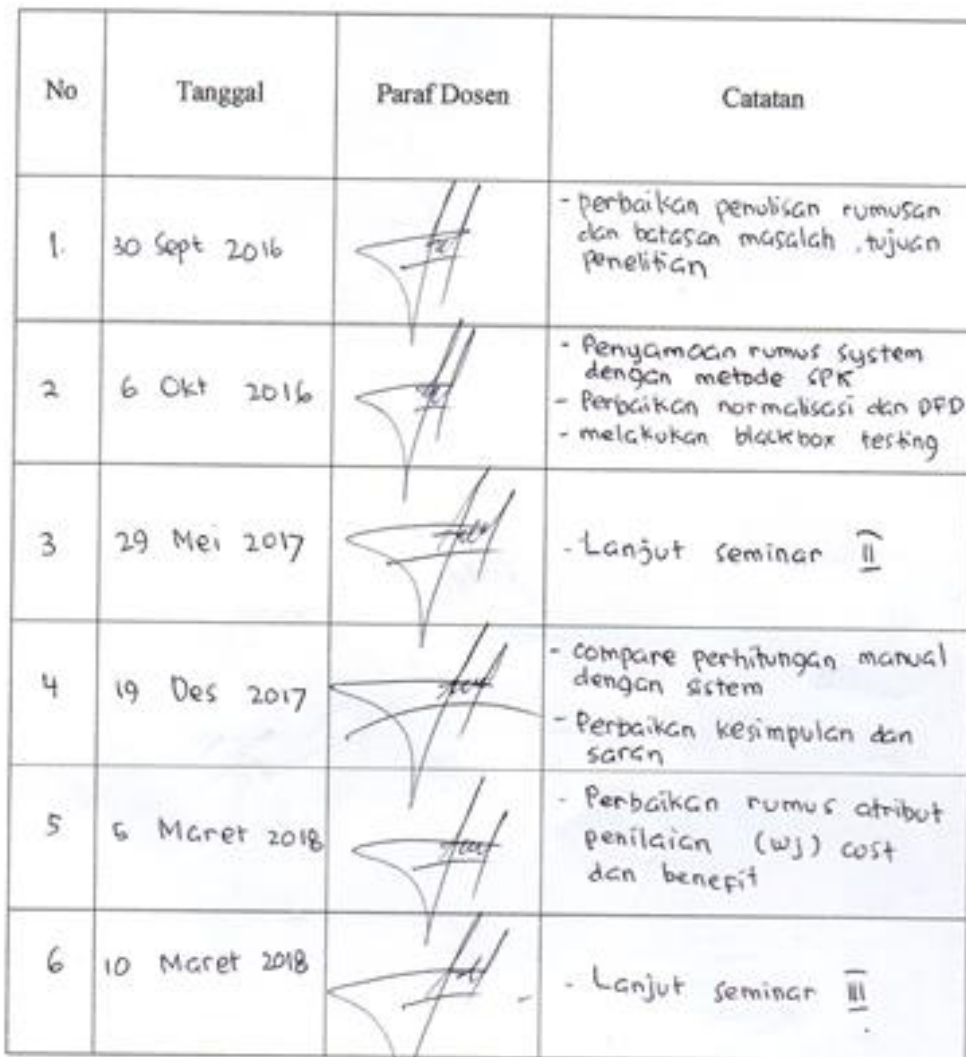 No Tanggal Paraf Dosen Catatan
1. 30 Sept 2016
- perbaikan penulisan rumusan
dan batasan masalah , tujuan
penelitian
2 6 Okt 2016
- Penyamaan rumus system
dengan metode SPK
- Perbaikan normalisasi dan DFD
- melakukan blackbox testing
3 29 Mei 2017
- Lanjut seminar II
4 19 Des 2017
- compare perhitungan manual
dengan sistem
- Perbaikan kesimpulan dan
saran
5 5 Maret 2018
- Perbaikan rumus atribut
penilaian (wj) cost
dan benefit
6 10 Maret 2018
- Lanjut seminar III